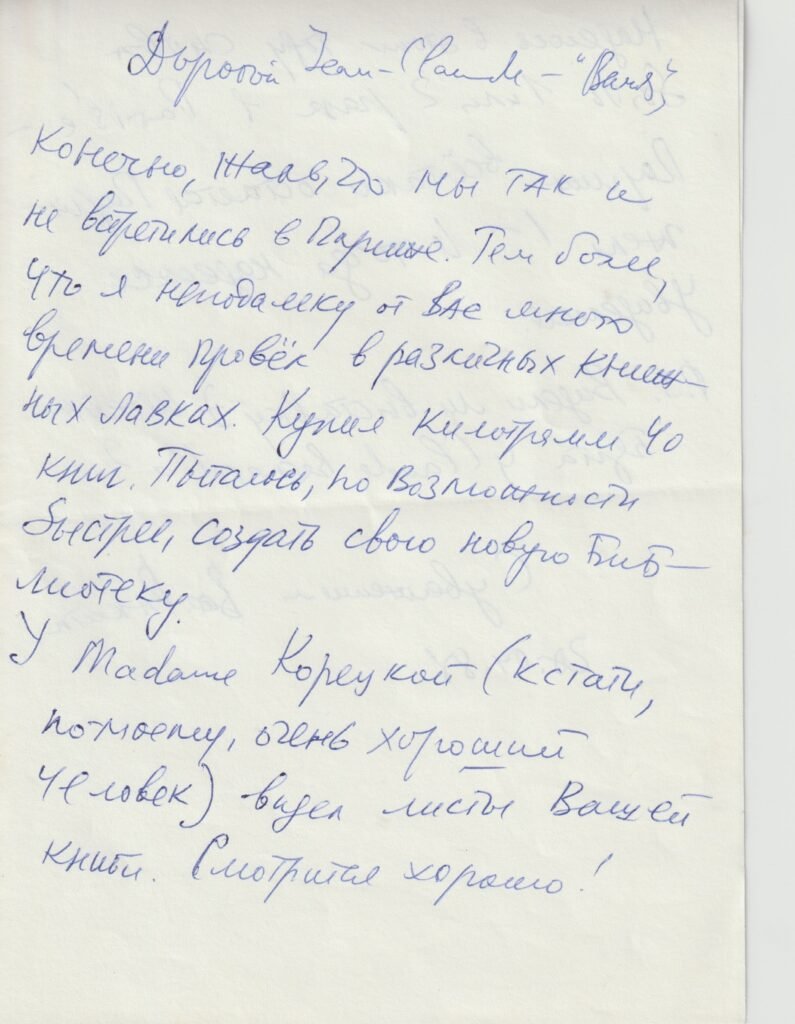 Дорогой Jean-Claude – "Ваня",
Конечно, жаль, что мы так и
не встретились в Париже. Тем более,
что я неподалеку от Вас много
времени провёл в различных книж-
ных лавках. Купил килограмм 40
книг. Пытаюсь, по возможности
быстрее, создать свою новую биб-
лиотеку.
У Madame Корецкой (кстати,
по-моему, очень хороший
человек) видел листы Вашей
книги. Смотрится хорошо!